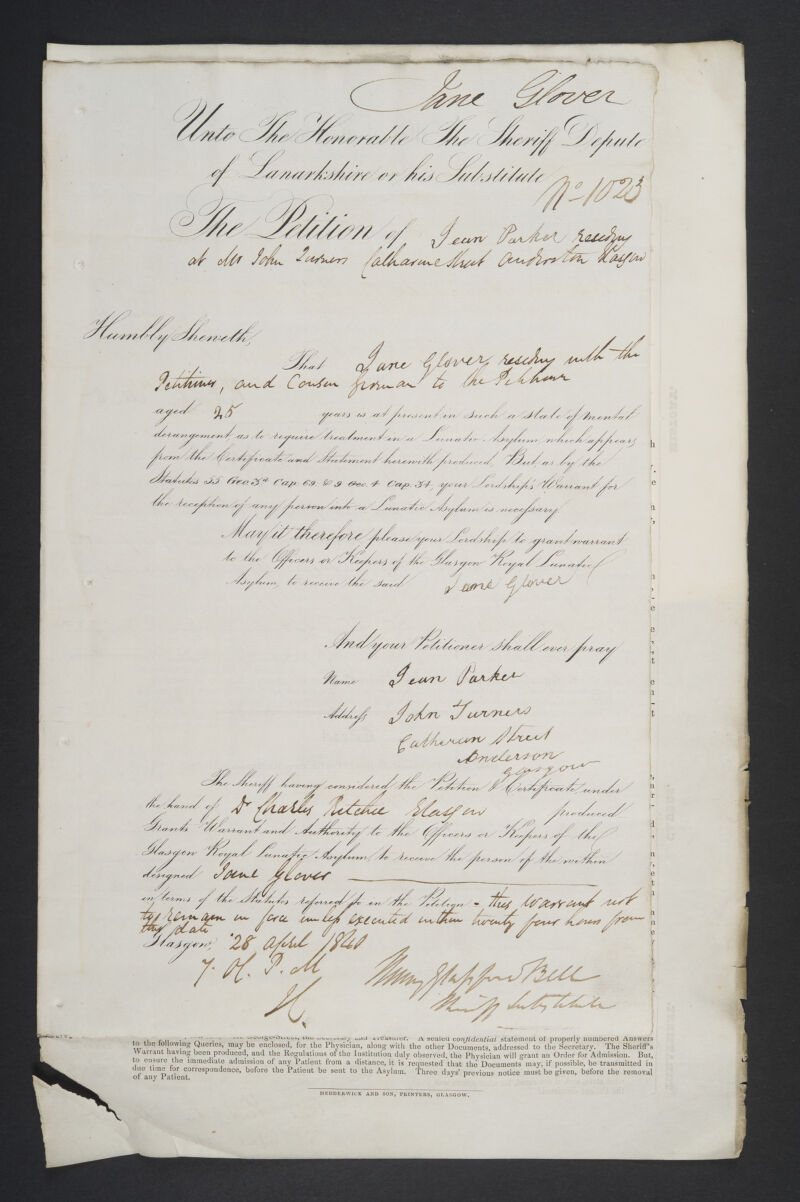 Jane Glover
Unto The Honorable The Sheriff Depute
of Lanarkshire or his Substitute
No 1023
The Petition of Jean Parker residing
at Mr John Turners Catharine Street Anderston Glasgow
Humbly Sheweth,
That Jane Glover, residing with the
Petitioner, and Cousin German to the Petitioner
aged 25 years is at present in such a state of mental
derangement as to require treatment in a Lunatic Asylum which appears
from the Certificate and Statement herewith produced, But as by the
Statutes 55 Geo. 3rd Cap. 69. & 9 Geo. 4 Cap. 34, your Lordship's Warrant for
the reception of any person into a Lunatic Asylum is necessary
May it therefore please your Lordship to grant warrant
to the Officers or Keepers of the Glasgow Royal Lunatic
Asylum, to receive the said Jane Glover
And your Petitioner shall ever pray
Name Jean Parker
Address John Turners
Catherun Street
Anderson
Glasgow
The Sheriff having considered the Petition & Certificate under
the hand of Dr Charles Ritchie Glasgow produced
Grants Warrant and Authority to the Officers or Keepers of the
Glasgow Royal Lunatic Asylum to receive the person of the within
designed Jane Glover
in terms of the Statutes referred to in the Petition - this Warrant not
to remain in force unless executed within twenty four hours from
this date
Glasgow, 28 April 1840
7. P. M
Henry Glassford Bell
Sheriff Substitute
George-Street, the Secretary and Treasurer. A sealed confidential statement of properly numbered Answers
to the following Queries, may be enclosed, for the Physician, along with the other Documents, addressed to the Secretary. The Sheriff's
Warrant having been produced, and the Regulations of the Institution duly observed, the Physician will grant an Order for Admission. But,
to ensure the immediate admission of any Patient from a distance, it is requested that the Documents may, if possible, be transmitted in
due time for correspondence, before the Patient be sent to the Asylum. Three days' previous notice must be given, before the removal
of any Patient.
HEDDERWICK AND SON, PRINTERS, GLASGOW.